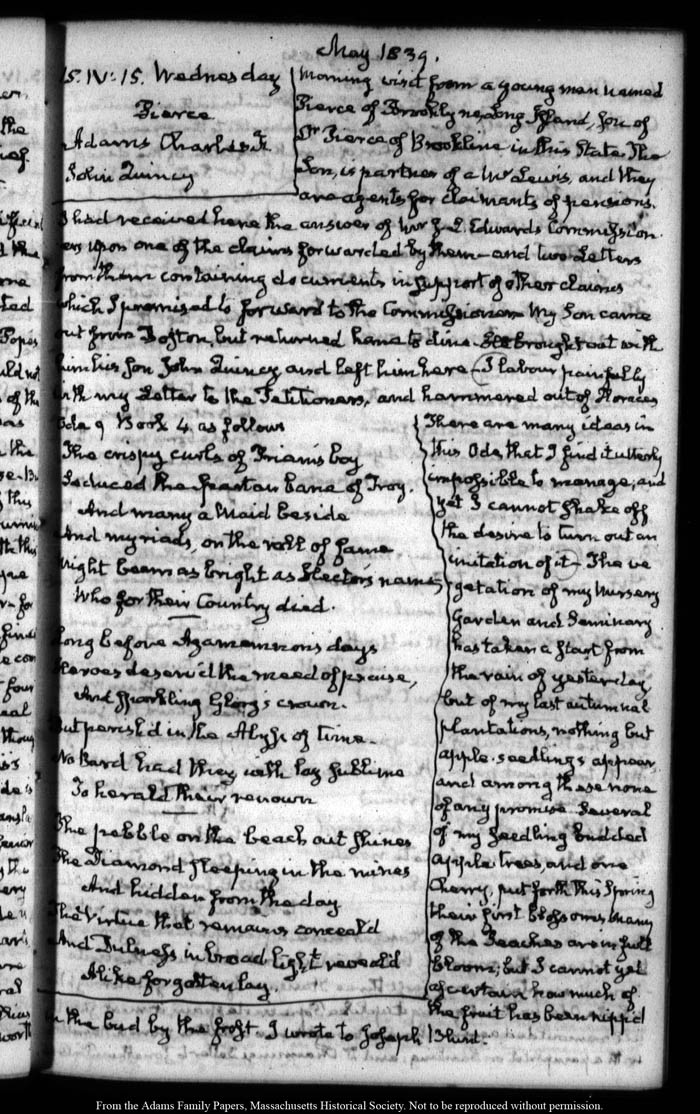 May 1839.
15. IV: 15. Wednesday
Pierce
Adams Charles F.
John Quincy
Morning visit from a young man named
Pierce of Brooklyne, Long Island, son of
Dr Pierce of Brookline in this State. The
Son, is partner of a Mr Lewis, and they
are agents for claimants of pensions.
I had received here the answer of Mr J. L. Edwards Commission-
er upon one of the claims forwarded by them— and two Letters
from them containing documents in support of other claims
which I promised to forward to the Commissioner. My Son came
out from Boston, but returned home to dine. He brought out with
him his son John Quincy and left him here— I labour painfully
with my Letter to the Petitioners, and hammered out of Horace's
Ode 9 Book 4. as follows
The crispy curls of Priam's boy
Seduced the Spartan bane of Troy.
And many a Maid beside
And myriads, on the roll of fame
Might beam as bright as Hector's name,
Who for their Country died.
Long before Agamemnons days
Heroes deserv'd the meed of praise,
And sparkling Glory's crown.
But perish'd in the Abyss of time.
No Bard had they with lay sublime
To herald their renown
The pebble on the beach out shines
The Diamond sleeping in the mines
And hidden from the day
The virtue that remains conceal'd
And Dulness in broad light reveal'd
Alike forgotten lay.
There are many ideas in
this Ode, that I find it utterly
impossible to manage, and
yet I cannot shake off
the desire to turn out an
imitation of it— The ve
getation of my Nursery
Garden and Seminary
has taken a start from
the rain of yesterday,
but of my last autumnal
plantations, nothing but
apple-seedlings appear,
and among these none
of any promise. Several
of my seedling budded
apple trees, and one
Cherry, put forth this Spring
their first blossoms, Many
of the Peaches are in full
bloom; but I cannot yet
ascertain how much of
the fruit has been nipp'd
in the bud by the frost. I wrote to Joseph Blunt.
From the Adams Family Papers, Massachusetts Historical Society. Not to be reproduced without permission.